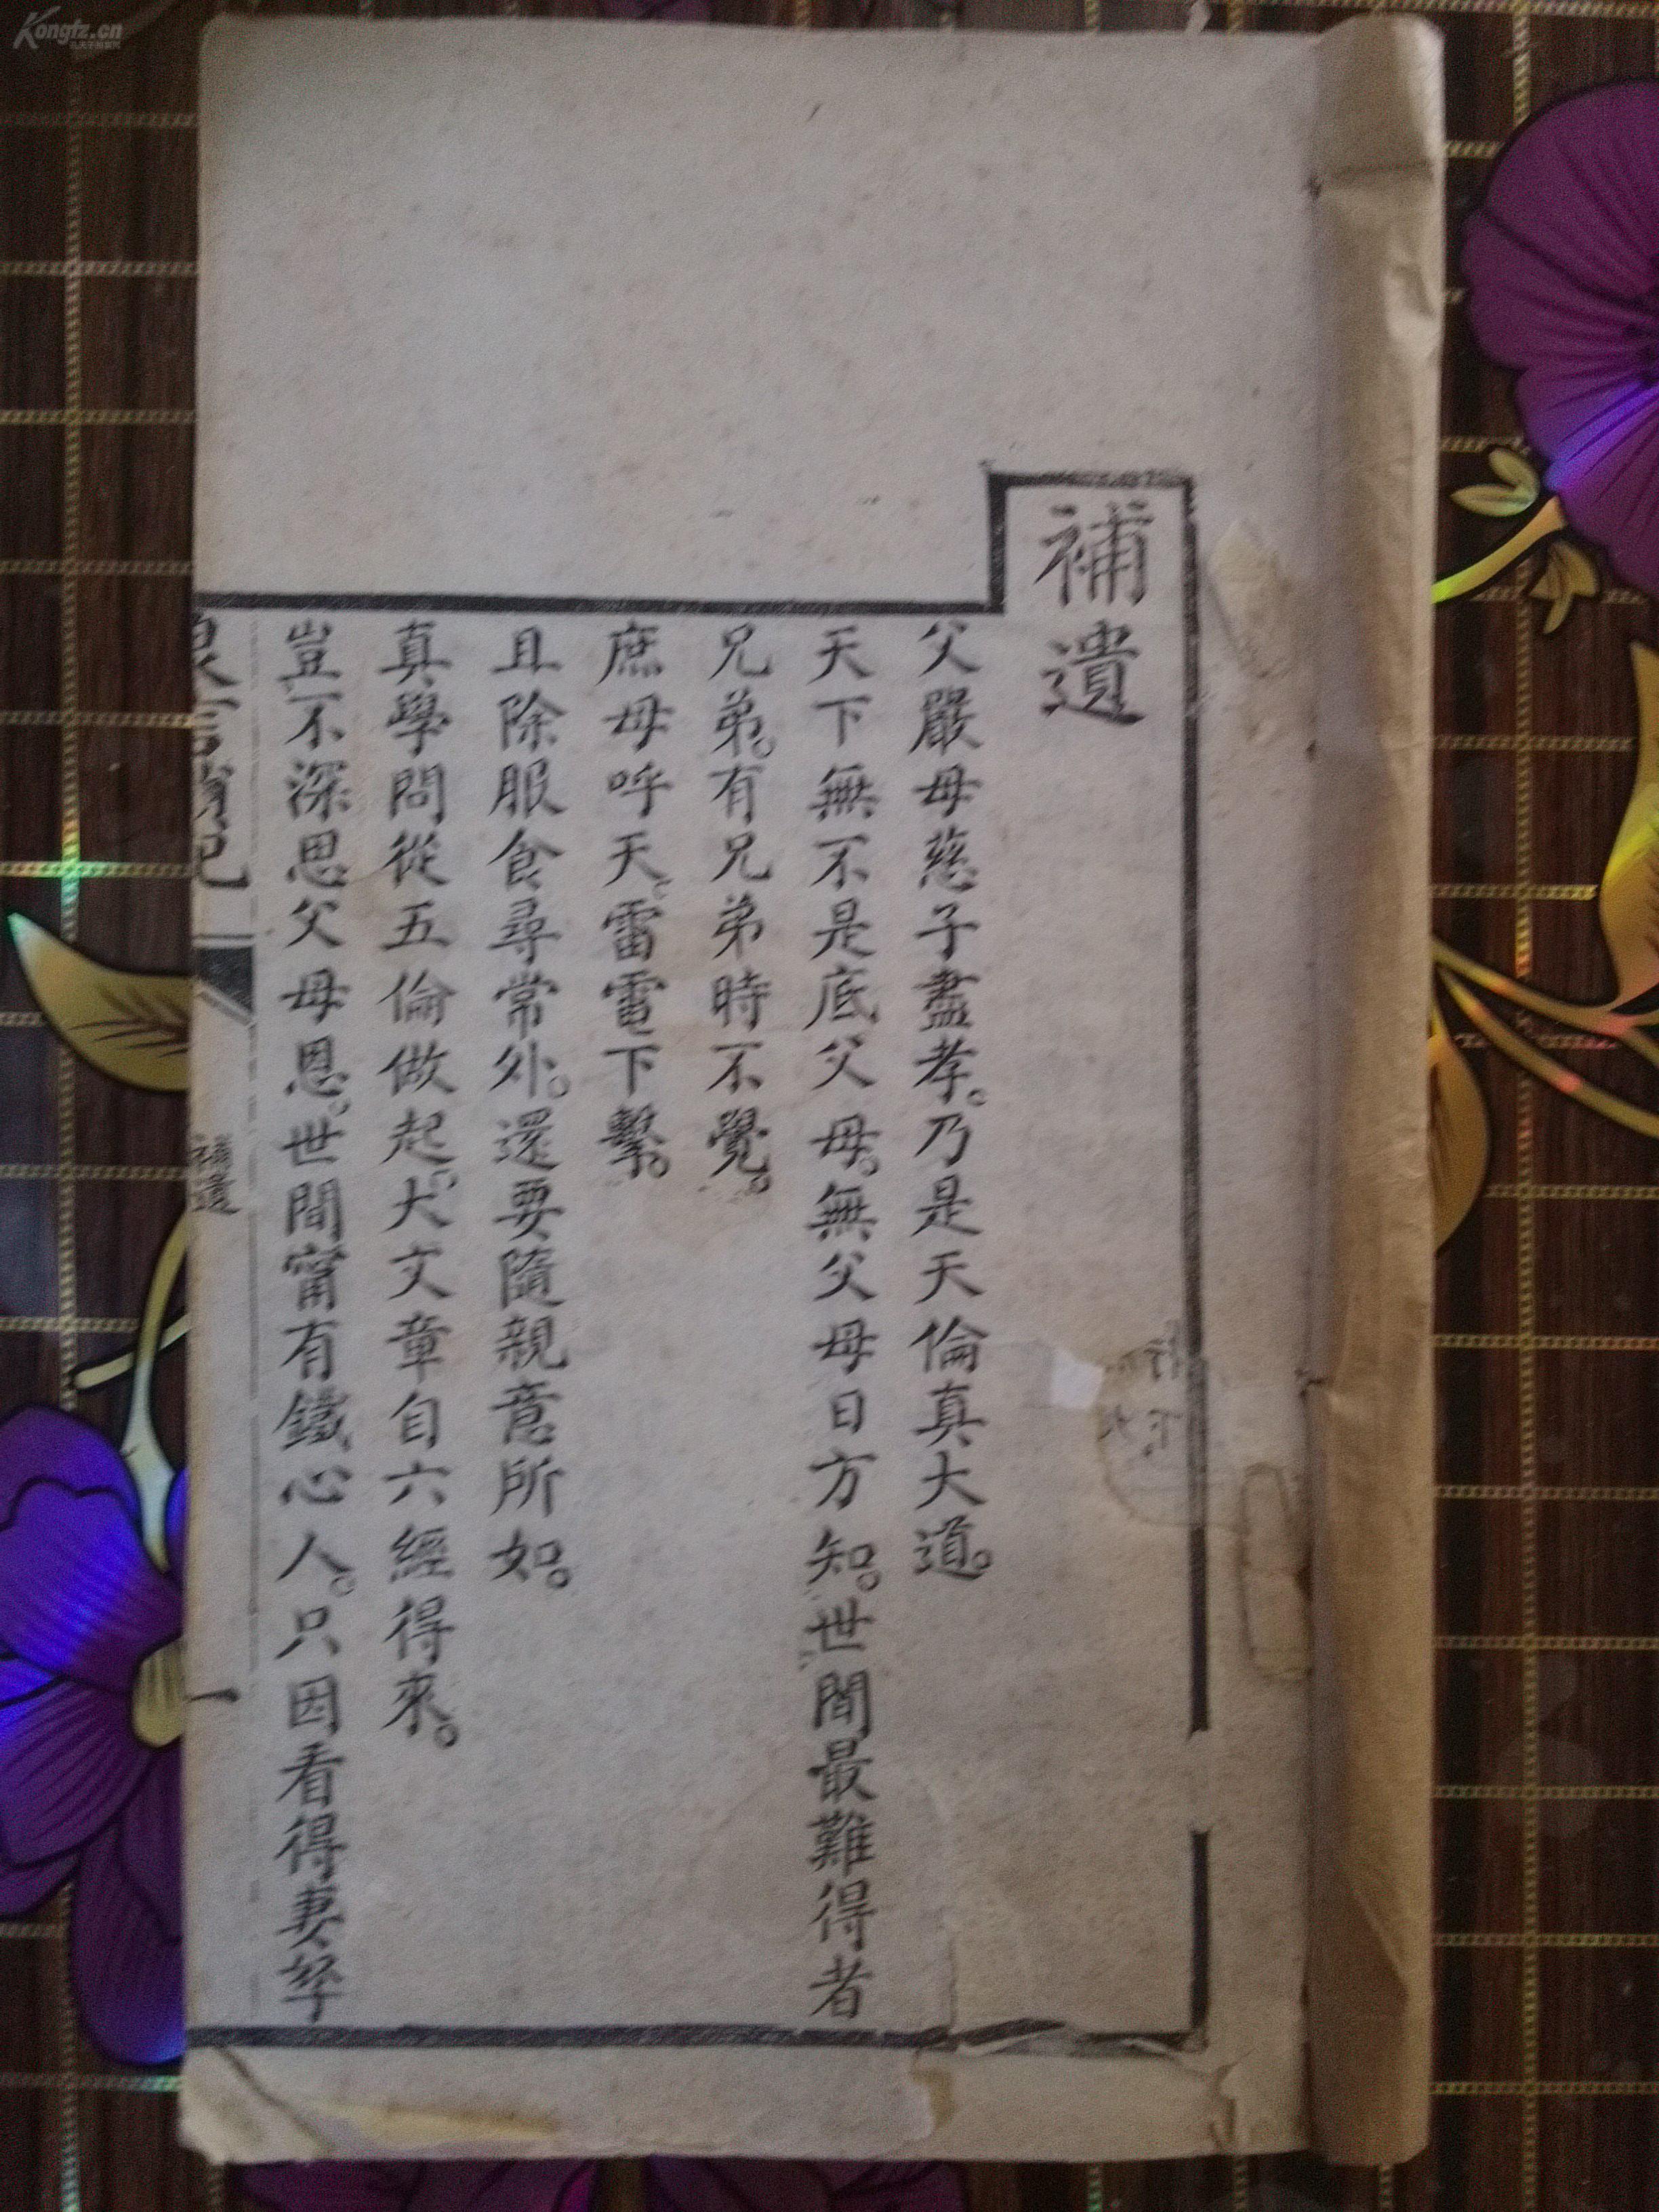 Kongfz.cn
補遺
父嚴母慈子盡孝。乃是天倫真大道。
天下無不是底父母。無父母日方知。世間最難得者
兄弟。有兄弟時不覺。
庶母呼天。雷電下擊。
且除服食尋常外。還要隨親意所如。
真學問從五倫做起。大文章自六經得來。
豈不深思父母恩。世間甯有鐵心人。只因看得妻孥
補遺
一